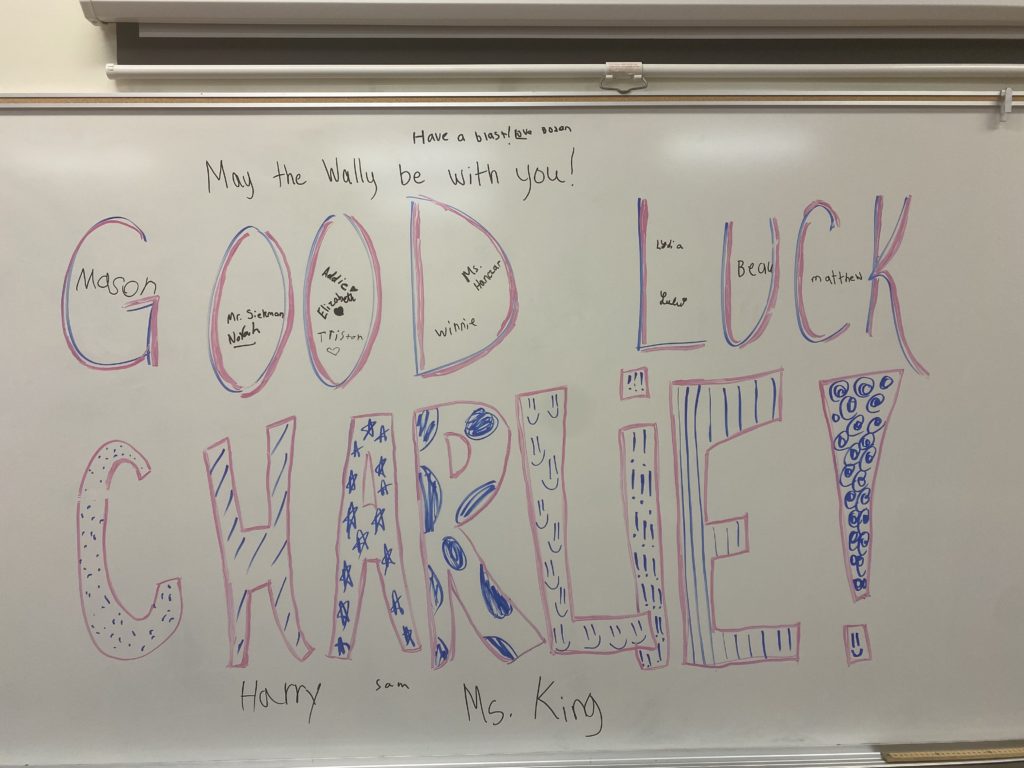 Have a blast! love
May the Wally be with you!
GOOD LUCK
Mason
Mr. Siekman
Norah
Addie
Elizabeth
Triston
Ms.
Hancar
Winnie
Lydia
Lulu
Beau
matthew
CHARLiE!
Harry
Sam
Ms. King